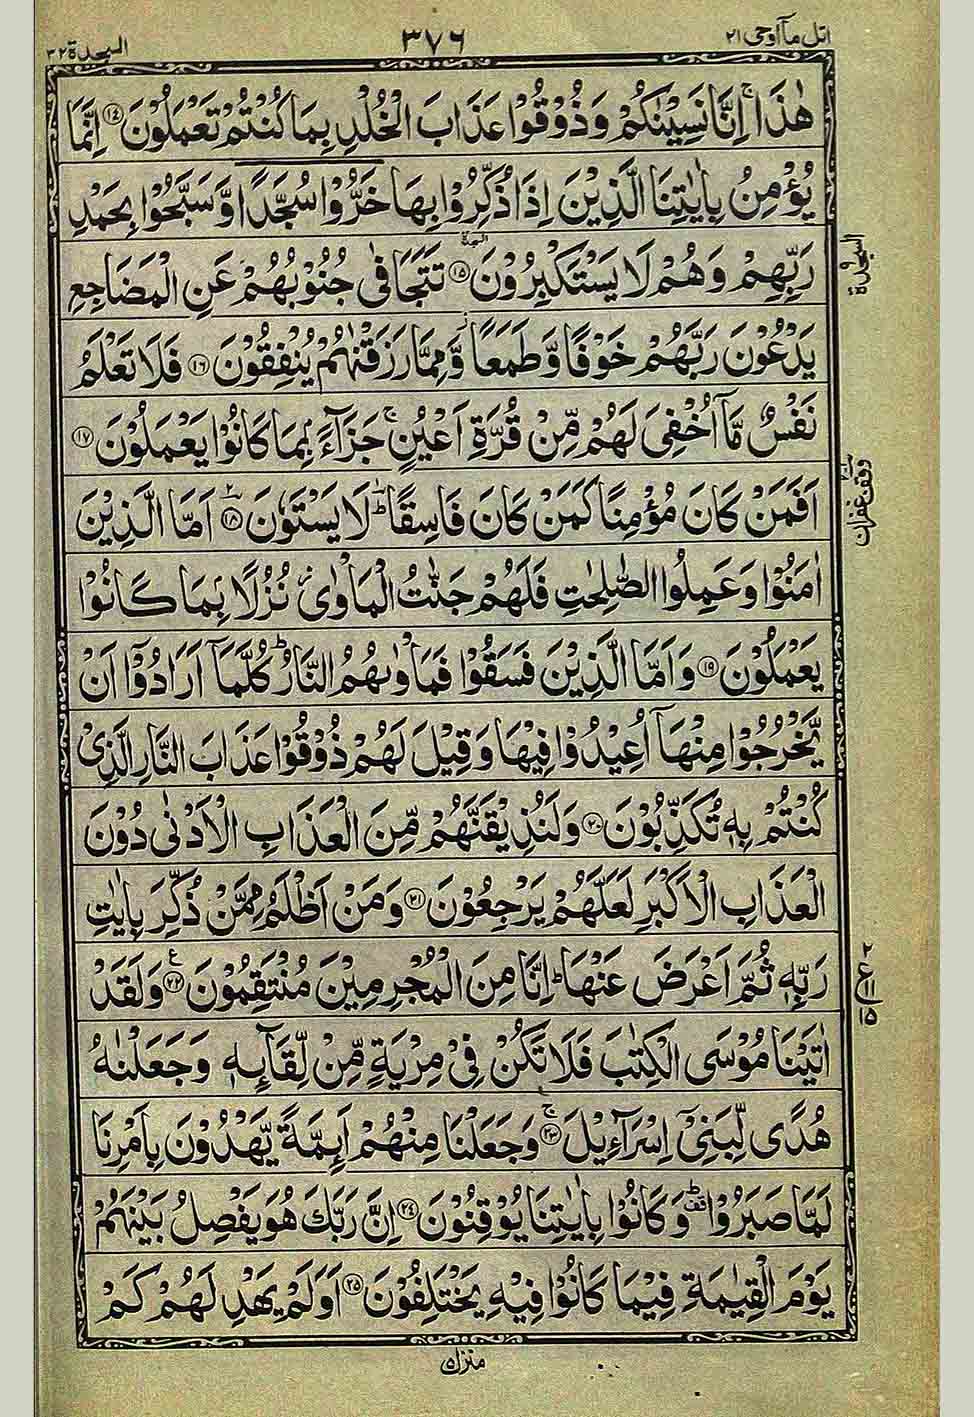 اتل مآ اوحی ۲۱
۳۷۶
السجدة ۳۲
هٰذَا ۚ اِنَّا نَسِيْنٰكُمْ وَذُوْقُوْا عَذَابَ الْخُلْدِ بِمَا كُنْتُمْ تَعْمَلُوْنَ ۝۱۴ اِنَّمَا
يُؤْمِنُ بِاٰيٰتِنَا الَّذِيْنَ اِذَا ذُكِّرُوْا بِهَا خَرُّوْا سُجَّدًا وَّسَبَّحُوْا بِحَمْدِ
رَبِّهِمْ وَهُمْ لَا يَسْتَكْبِرُوْنَ ۝۱۵ تَتَجَافٰى جُنُوْبُهُمْ عَنِ الْمَضَاجِعِ
السجدة
يَدْعُوْنَ رَبَّهُمْ خَوْفًا وَّطَمَعًا ؗ وَّمِمَّا رَزَقْنٰهُمْ يُنْفِقُوْنَ ۝۱۶ فَلَا تَعْلَمُ
نَفْسٌ مَّاۤ اُخْفِيَ لَهُمْ مِّنْ قُرَّةِ اَعْيُنٍ ۚ جَزَآءًۢ بِمَا كَانُوْا يَعْمَلُوْنَ ۝۱۷
وقف غفران
اَفَمَنْ كَانَ مُؤْمِنًا كَمَنْ كَانَ فَاسِقًا ؕ لَا يَسْتَوٗنَ ۝۱۸ اَمَّا الَّذِيْنَ
اٰمَنُوْا وَعَمِلُوا الصّٰلِحٰتِ فَلَهُمْ جَنّٰتُ الْمَاْوٰى ؗ نُزُلًۢا بِمَا كَانُوْا
يَعْمَلُوْنَ ۝۱۹ وَاَمَّا الَّذِيْنَ فَسَقُوْا فَمَاْوٰىهُمُ النَّارُ ؕ كُلَّمَاۤ اَرَادُوْۤا اَنْ
يَّخْرُجُوْا مِنْهَاۤ اُعِيْدُوْا فِيْهَا وَقِيْلَ لَهُمْ ذُوْقُوْا عَذَابَ النَّارِ الَّذِيْ
كُنْتُمْ بِهٖ تُكَذِّبُوْنَ ۝۲۰ وَلَنُذِيْقَنَّهُمْ مِّنَ الْعَذَابِ الْاَدْنٰى دُوْنَ
الْعَذَابِ الْاَكْبَرِ لَعَلَّهُمْ يَرْجِعُوْنَ ۝۲۱ وَمَنْ اَظْلَمُ مِمَّنْ ذُكِّرَ بِاٰيٰتِ
رَبِّهٖ ثُمَّ اَعْرَضَ عَنْهَا ؕ اِنَّا مِنَ الْمُجْرِمِيْنَ مُنْتَقِمُوْنَ ۝۲۲ وَلَقَدْ
اٰتَيْنَا مُوْسَى الْكِتٰبَ فَلَا تَكُنْ فِيْ مِرْيَةٍ مِّنْ لِّقَآئِهٖ وَجَعَلْنٰهُ
هُدًى لِّبَنِيْۤ اِسْرَآءِيْلَ ۝۲۳ۚ وَجَعَلْنَا مِنْهُمْ اَئِمَّةً يَّهْدُوْنَ بِاَمْرِنَا
لَمَّا صَبَرُوْا ۫ؕ وَكَانُوْا بِاٰيٰتِنَا يُوْقِنُوْنَ ۝۲۴ اِنَّ رَبَّكَ هُوَ يَفْصِلُ بَيْنَهُمْ
يَوْمَ الْقِيٰمَةِ فِيْمَا كَانُوْا فِيْهِ يَخْتَلِفُوْنَ ۝۲۵ اَوَلَمْ يَهْدِ لَهُمْ كَمْ
منزل ۵